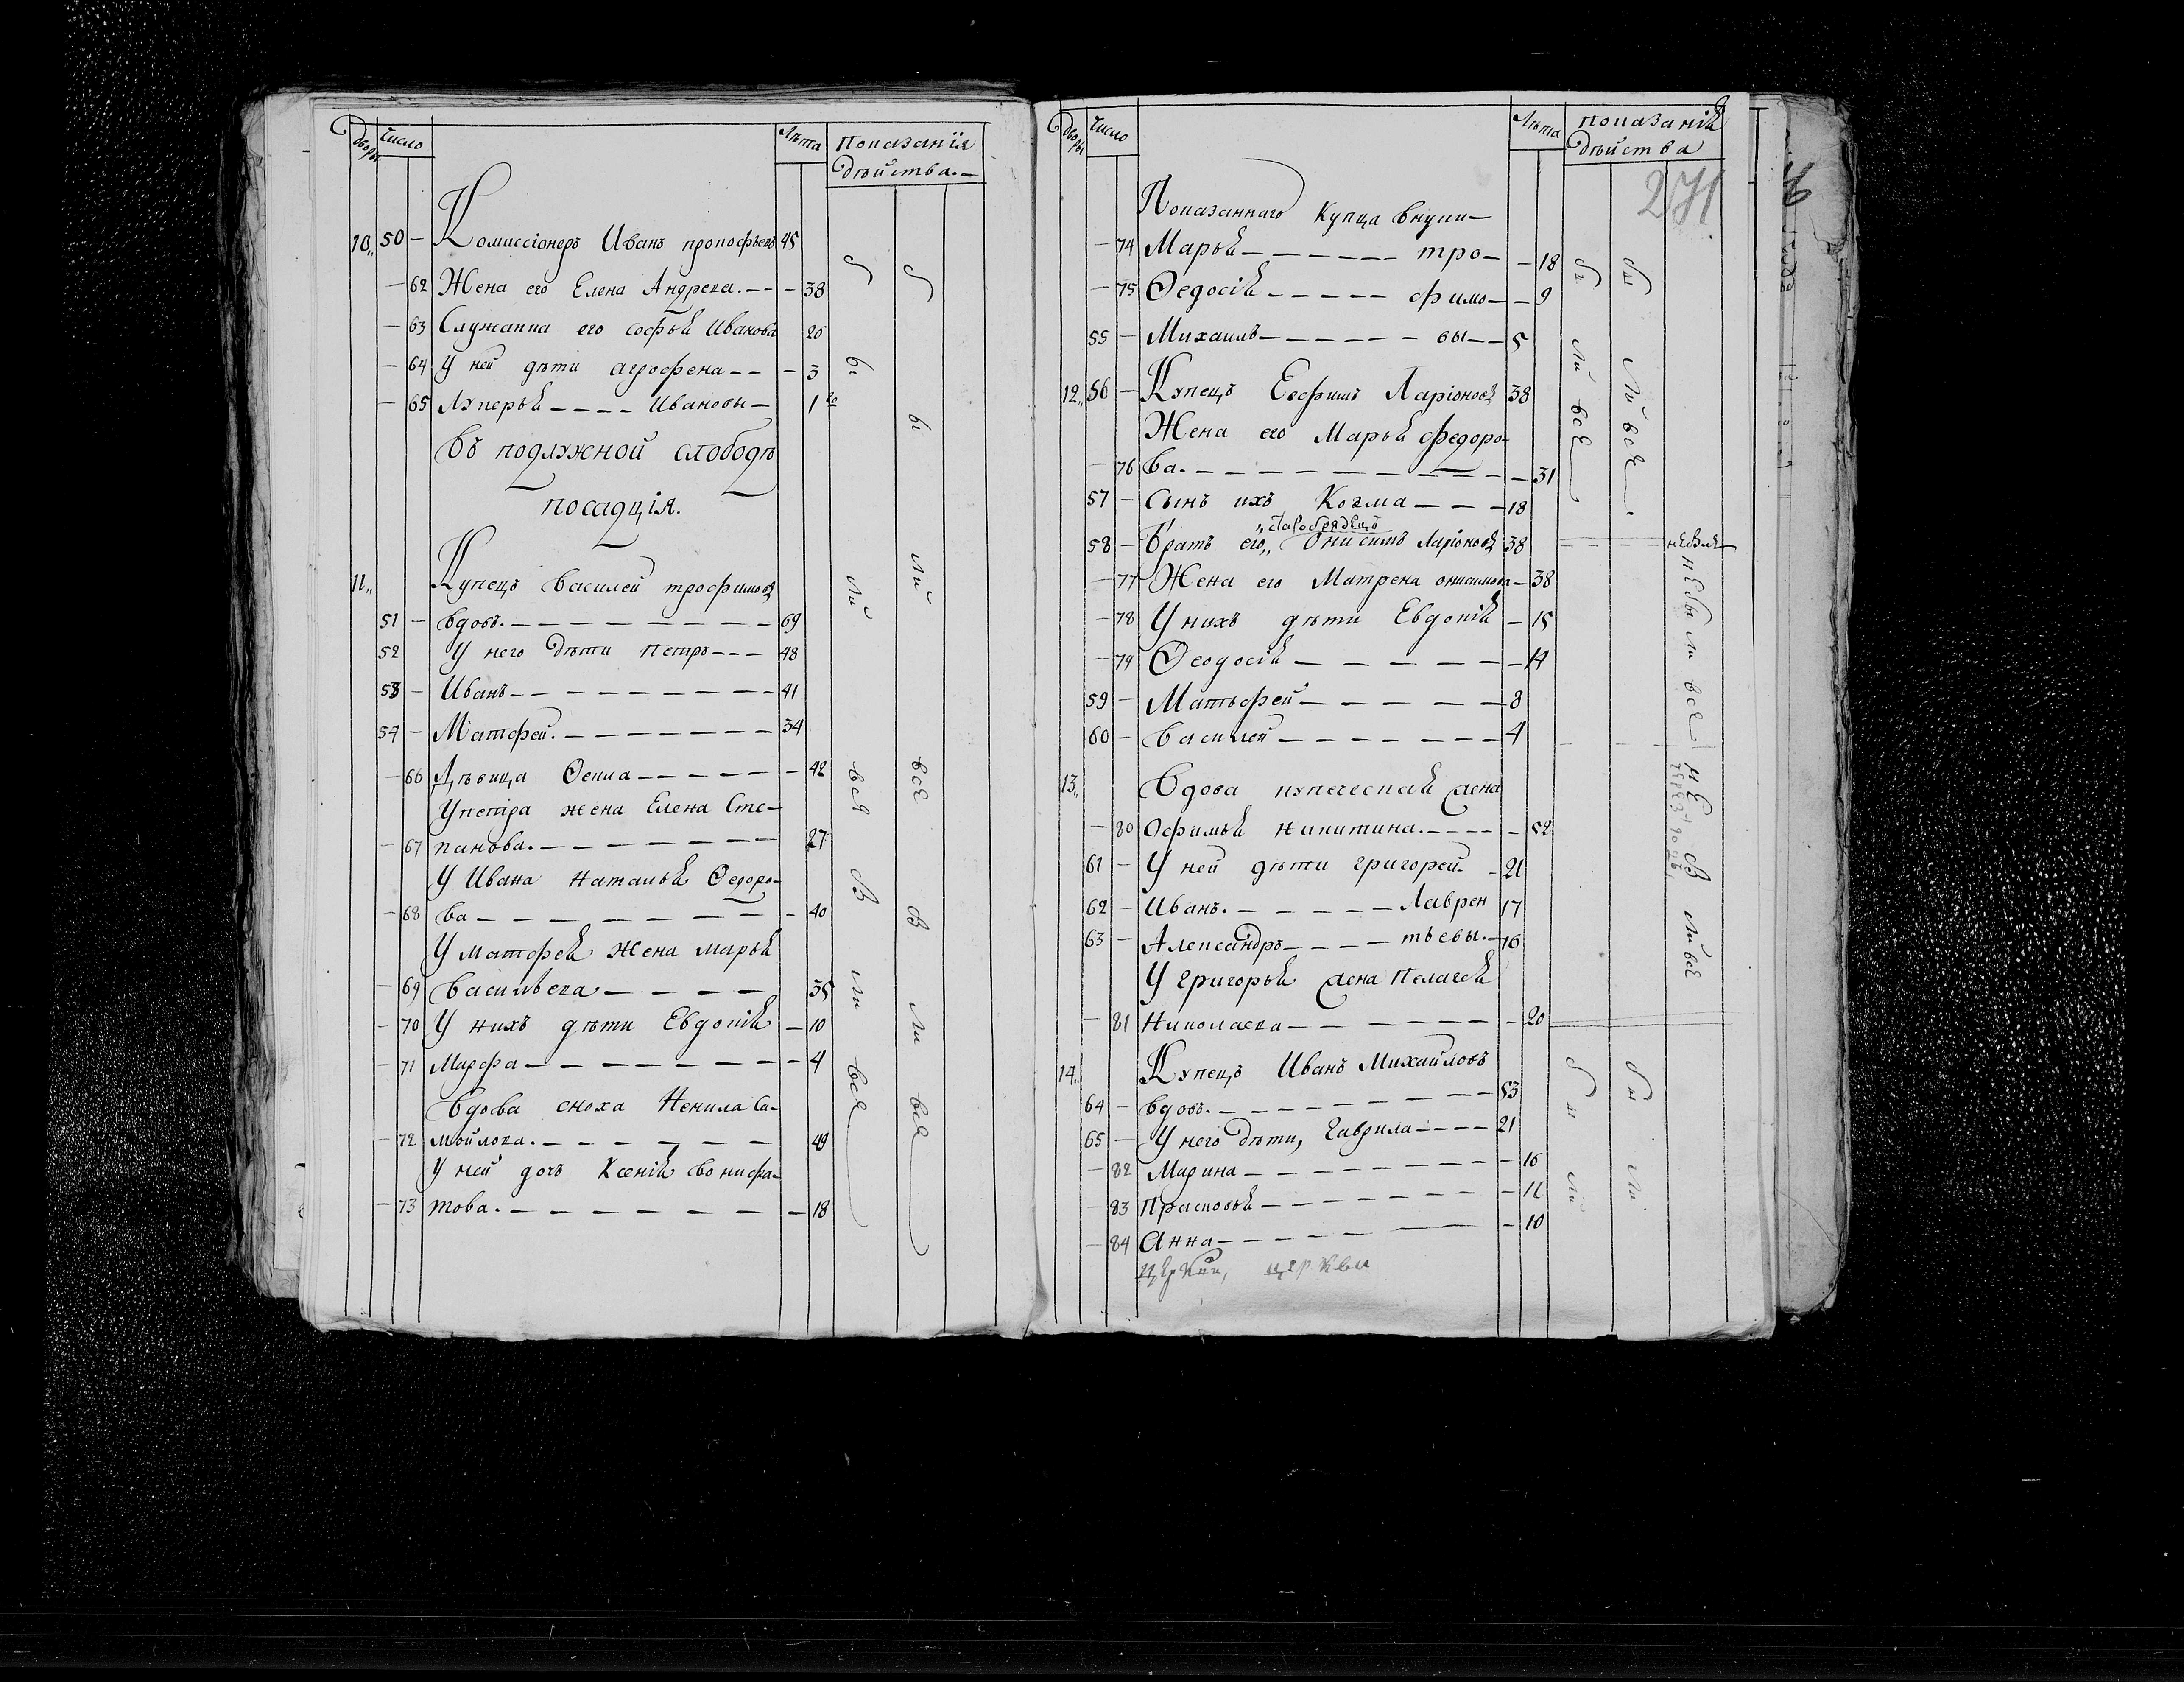 Дворы Число Лѣта Показанія
дѣйства.
10 50 Комиссіонеръ Иванъ прокофьевъ 45
62 Жена его Елена Андреева. 38
63 Служанка его софья Иванова 26
64 У ней дѣти агрофена 3
65 Лукерья Ивановы 1
въ подлужной слободѣ
посадція.
11 Купецъ Василей трофимовъ
51 вдовъ. 69
52 У него Дѣти Петръ 48
53 Иванъ 41
54 Матфей. 34
66 Дѣвица Фекла 42
У петра жена Елена Сте-
67 панова. 27
У Ивана Наталья Федоро-
68 ва 40
У матфея жена марья
69 Васильева 35
70 У нихъ дѣти Евдокія 10
71 Марфа 4
Вдова сноха Ненила Са-
72 мойлова. 49
У ней дочь Ксенія Вонифа-
73 това. 18
были вся
были вся
Вся В ли вся
вся В ли вся
Дворы Число Лѣта показанія
дѣйства
271
Показаннаго купца внуки
74 Марья тро- 18
75 Федосія фимо- 9
55 Михаилъ вы 5
12 56 Купецъ Ефимъ Ларіоновъ 38
Жена его Марья федоро-
76 ва. 31
57 Сынъ ихъ Козма 18
58 Братъ его, Онисимъ Ларіоновъ 38
77 Жена его Матрена онисимова 38
78 У нихъ дѣти Евдокія 15
79 Феодосія 14
59 Матьфей 8
60 Василей 4
13 Вдова купеческая жена
80 Офимья никитина. 52
61 У ней дѣти григорей 21
62 Иванъ. Лаврен 17
63 Александръ тьевы. 16
У григорья жена Пелагея
81 Николаева 20
14 Купецъ Иванъ Михайловъ
64 вдовъ. 53
65 У него дѣти, Гаврила 21
82 Марина 16
83 Прасковья 11
84 Анна 10
церкви, церкви
были вся
были вся
не были вся
бы ли
бы ли